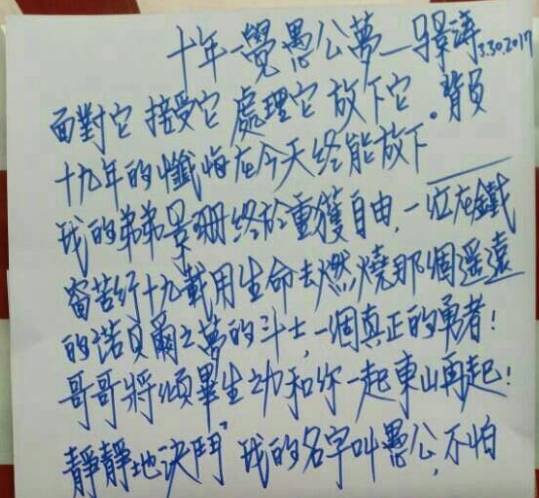 十年一覺愚公夢—景濤 3.30.2017
面對它 接受它 處理它 放下它。背負
十九年的懺悔在今天終能放下
我的弟弟景珊終於重獲自由,一位在鐵
窗苦行十九載用生命去燃燒那個遥遠
的諾貝爾之夢的斗士,一個真正的勇者!
哥哥將傾畢生之力和你一起東山再起!
靜靜地決鬥 我的名字叫愚公,不怕